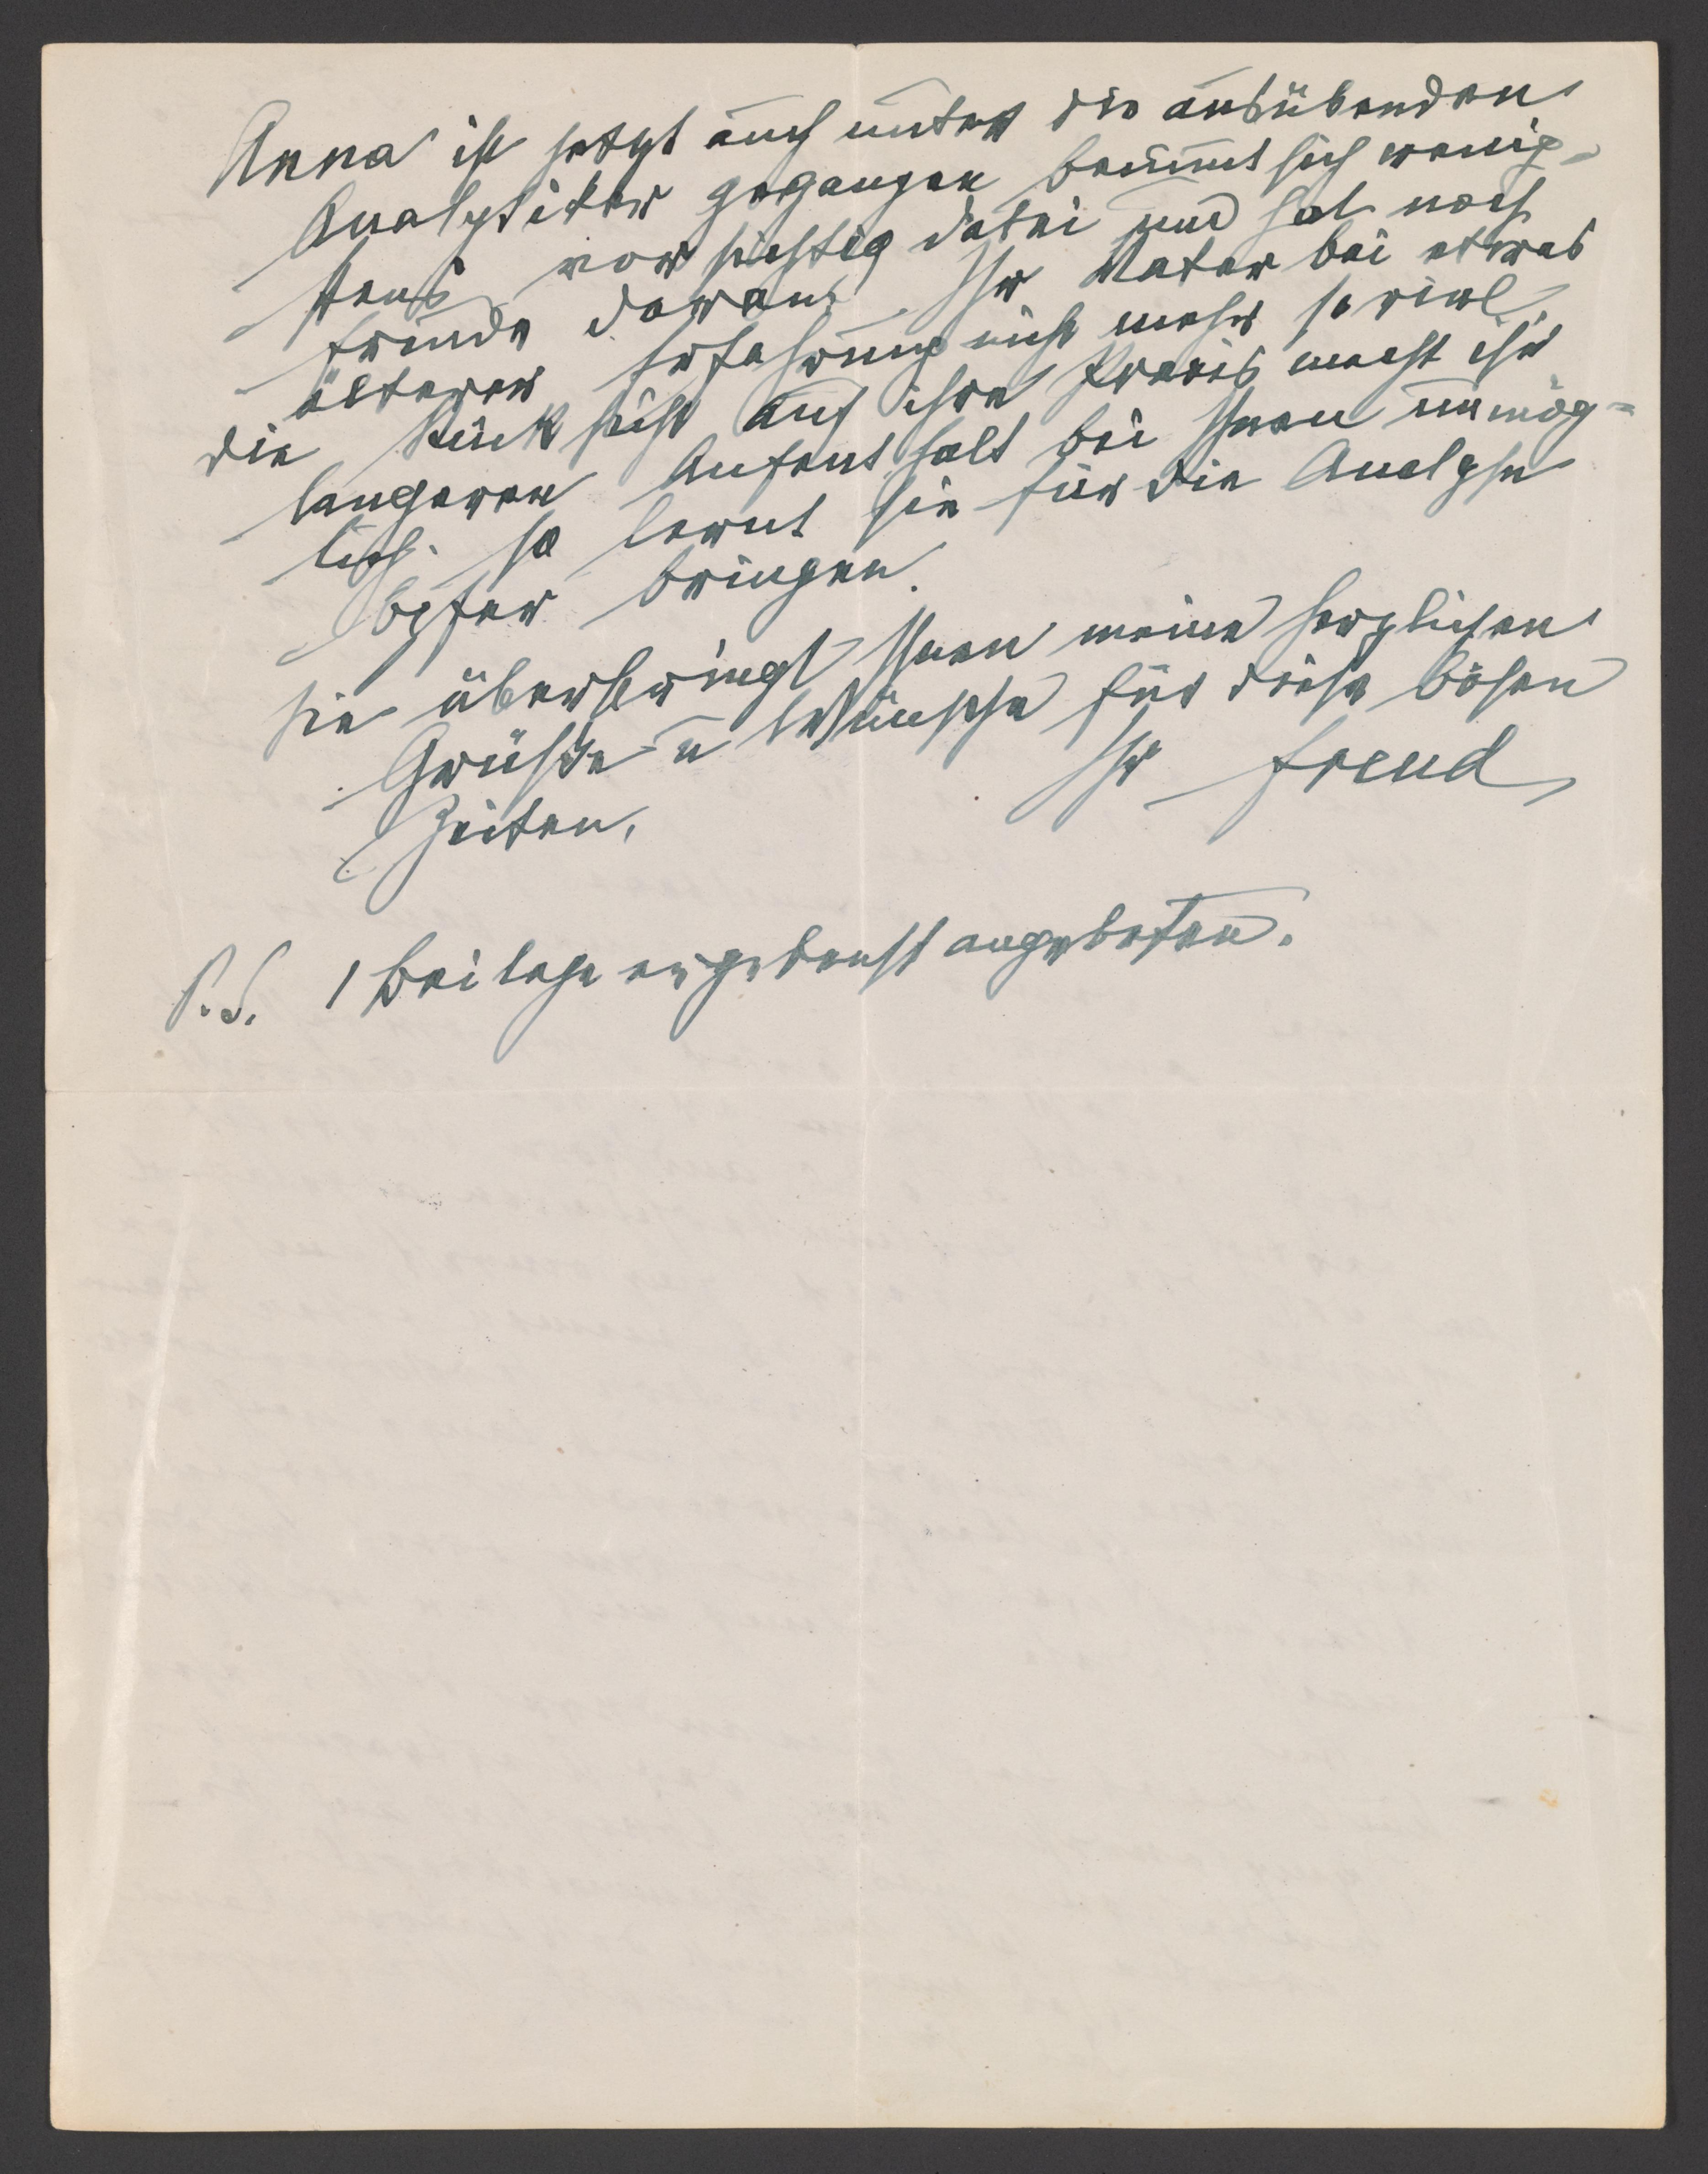 Anna ist jetzt auch unter die ausübenden
Analytiker gegangen benimmt sich wenig-
stens vorsichtig dabei und hat noch
Freude daran. Ihr Vater bei etwas
älterer Erfahrung nicht mehr so viel.
Die Rücksicht auf ihre Praxis macht ihr
längeren Aufenthalt bei Ihnen unmög=
lich. So lernt sie für die Analyse
Opfer bringen.
Sie überbringt Ihnen meine herzlichen
Grüße u Wünsche für diese bösen
Zeiten.
Ihr Freud
P.S. 1 Beilage ergebenst angeboten.